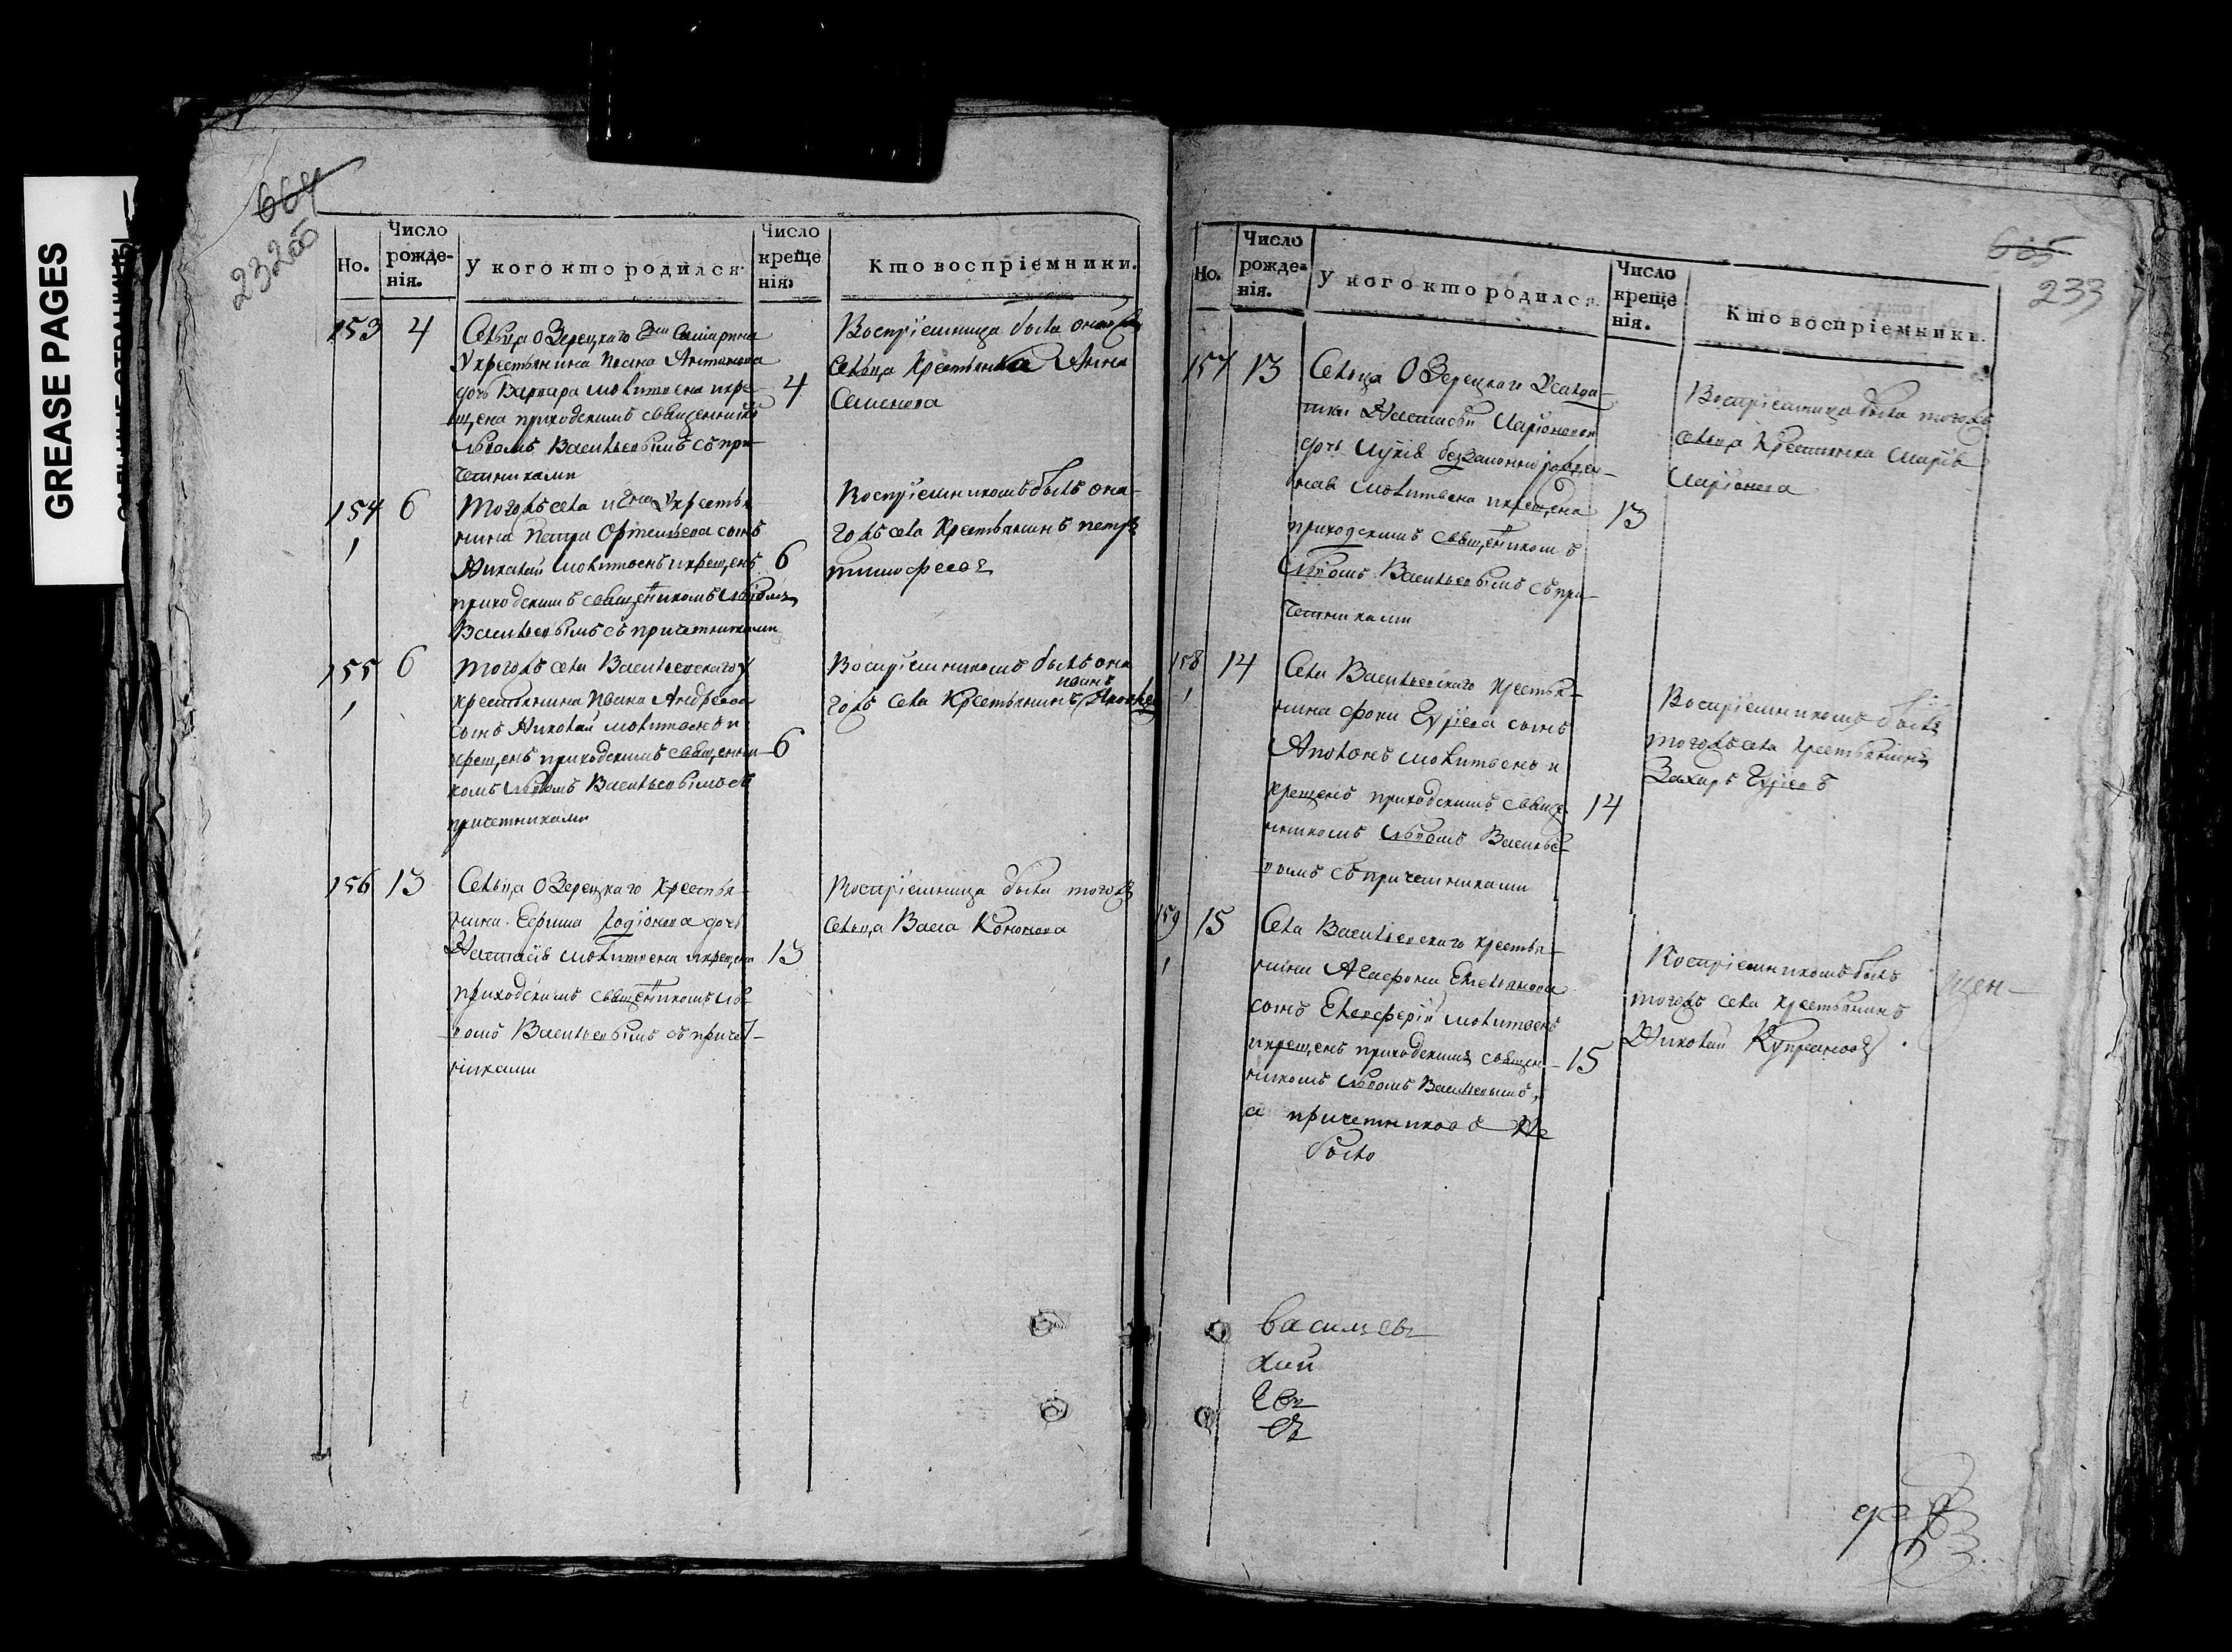 GREASE PAGES
664
232об
Но.
Число рожде-нія.
У кого кто родился.
Число креще нія.
Кто воспріемники.
153 4
Сельца Озерецкого
У крестьянина Ивана Антонова
дочь Варвара молитвена икре-
щена приходскимъ священникомъ
Львомъ Васильевымъ съ при-
четниками
4
Воспріемница была
сельца Крестьянка Анна
Семенова
154 6
1
тогожъ села у крестья
нина Петра Ортемьева сынъ
Николай молитвенъ икрещенъ
приходскимъ священникомъ Львомъ
Васильевымъ съ причетниками
6
Воспріемникомъ былъ она-
гожъ села Крестьянинъ петръ
тимофеевъ
155 6
1
тогожъ села Васильевскаго у
крестьянина Ивана Андреева
сынъ Николай молитвенъ и
крещенъ приходскимъ священни-
комъ Львомъ Васильевымъ съ
причетниками
6
Воспріемникомъ былъ она
гожъ села Крестьянинъ иванъ
156 13
Сельца Озерецкаго крестья-
нина Ефима Родіонова дочь
Настасія молитвена икрещена
приходскимъ священникомъ Ль-
вомъ Васильевымъ съ причет-
никами
13
Воспріемница была тогожъ
сельца Васа Кононова
605
233
Но.
Число рожде-нія.
У кого кто родился.
Число креще нія.
Кто воспріемники.
157 13
Сельца Озерецкаго Усалда-
тки Настасьи Ларіоновой
дочь беззаконнорожден-
ная молитвена икрещена
приходскимъ священникомъ
Львомъ Васильевымъ съ при-
четниками
13
Воспріемница была тогожъ
сельца Крестьянка Марія
Ларіонова
158 14
1
Села Васильевскаго крестья-
нина фоки Гурьева сынъ
Аполонъ молитвенъ и
крещенъ приходскимъ свяще
нникомъ Львомъ Василье-
вымъ съ причетниками
14
Воспріемникомъ былъ
тогожъ села крестьянинъ
Захаръ Гурьевъ
159 15
1
Села Васильевскаго крестья-
нина Агафона Емельянова
сынъ Елевферій молитвенъ
икрещенъ приходскимъ священ-
никомъ Львомъ Васильевымъ,
а причетниковъ Не
было
15
Воспріемникомъ былъ
тогожъ села крестьянинъ
Николай Купреяновъ
щен-
Васильев